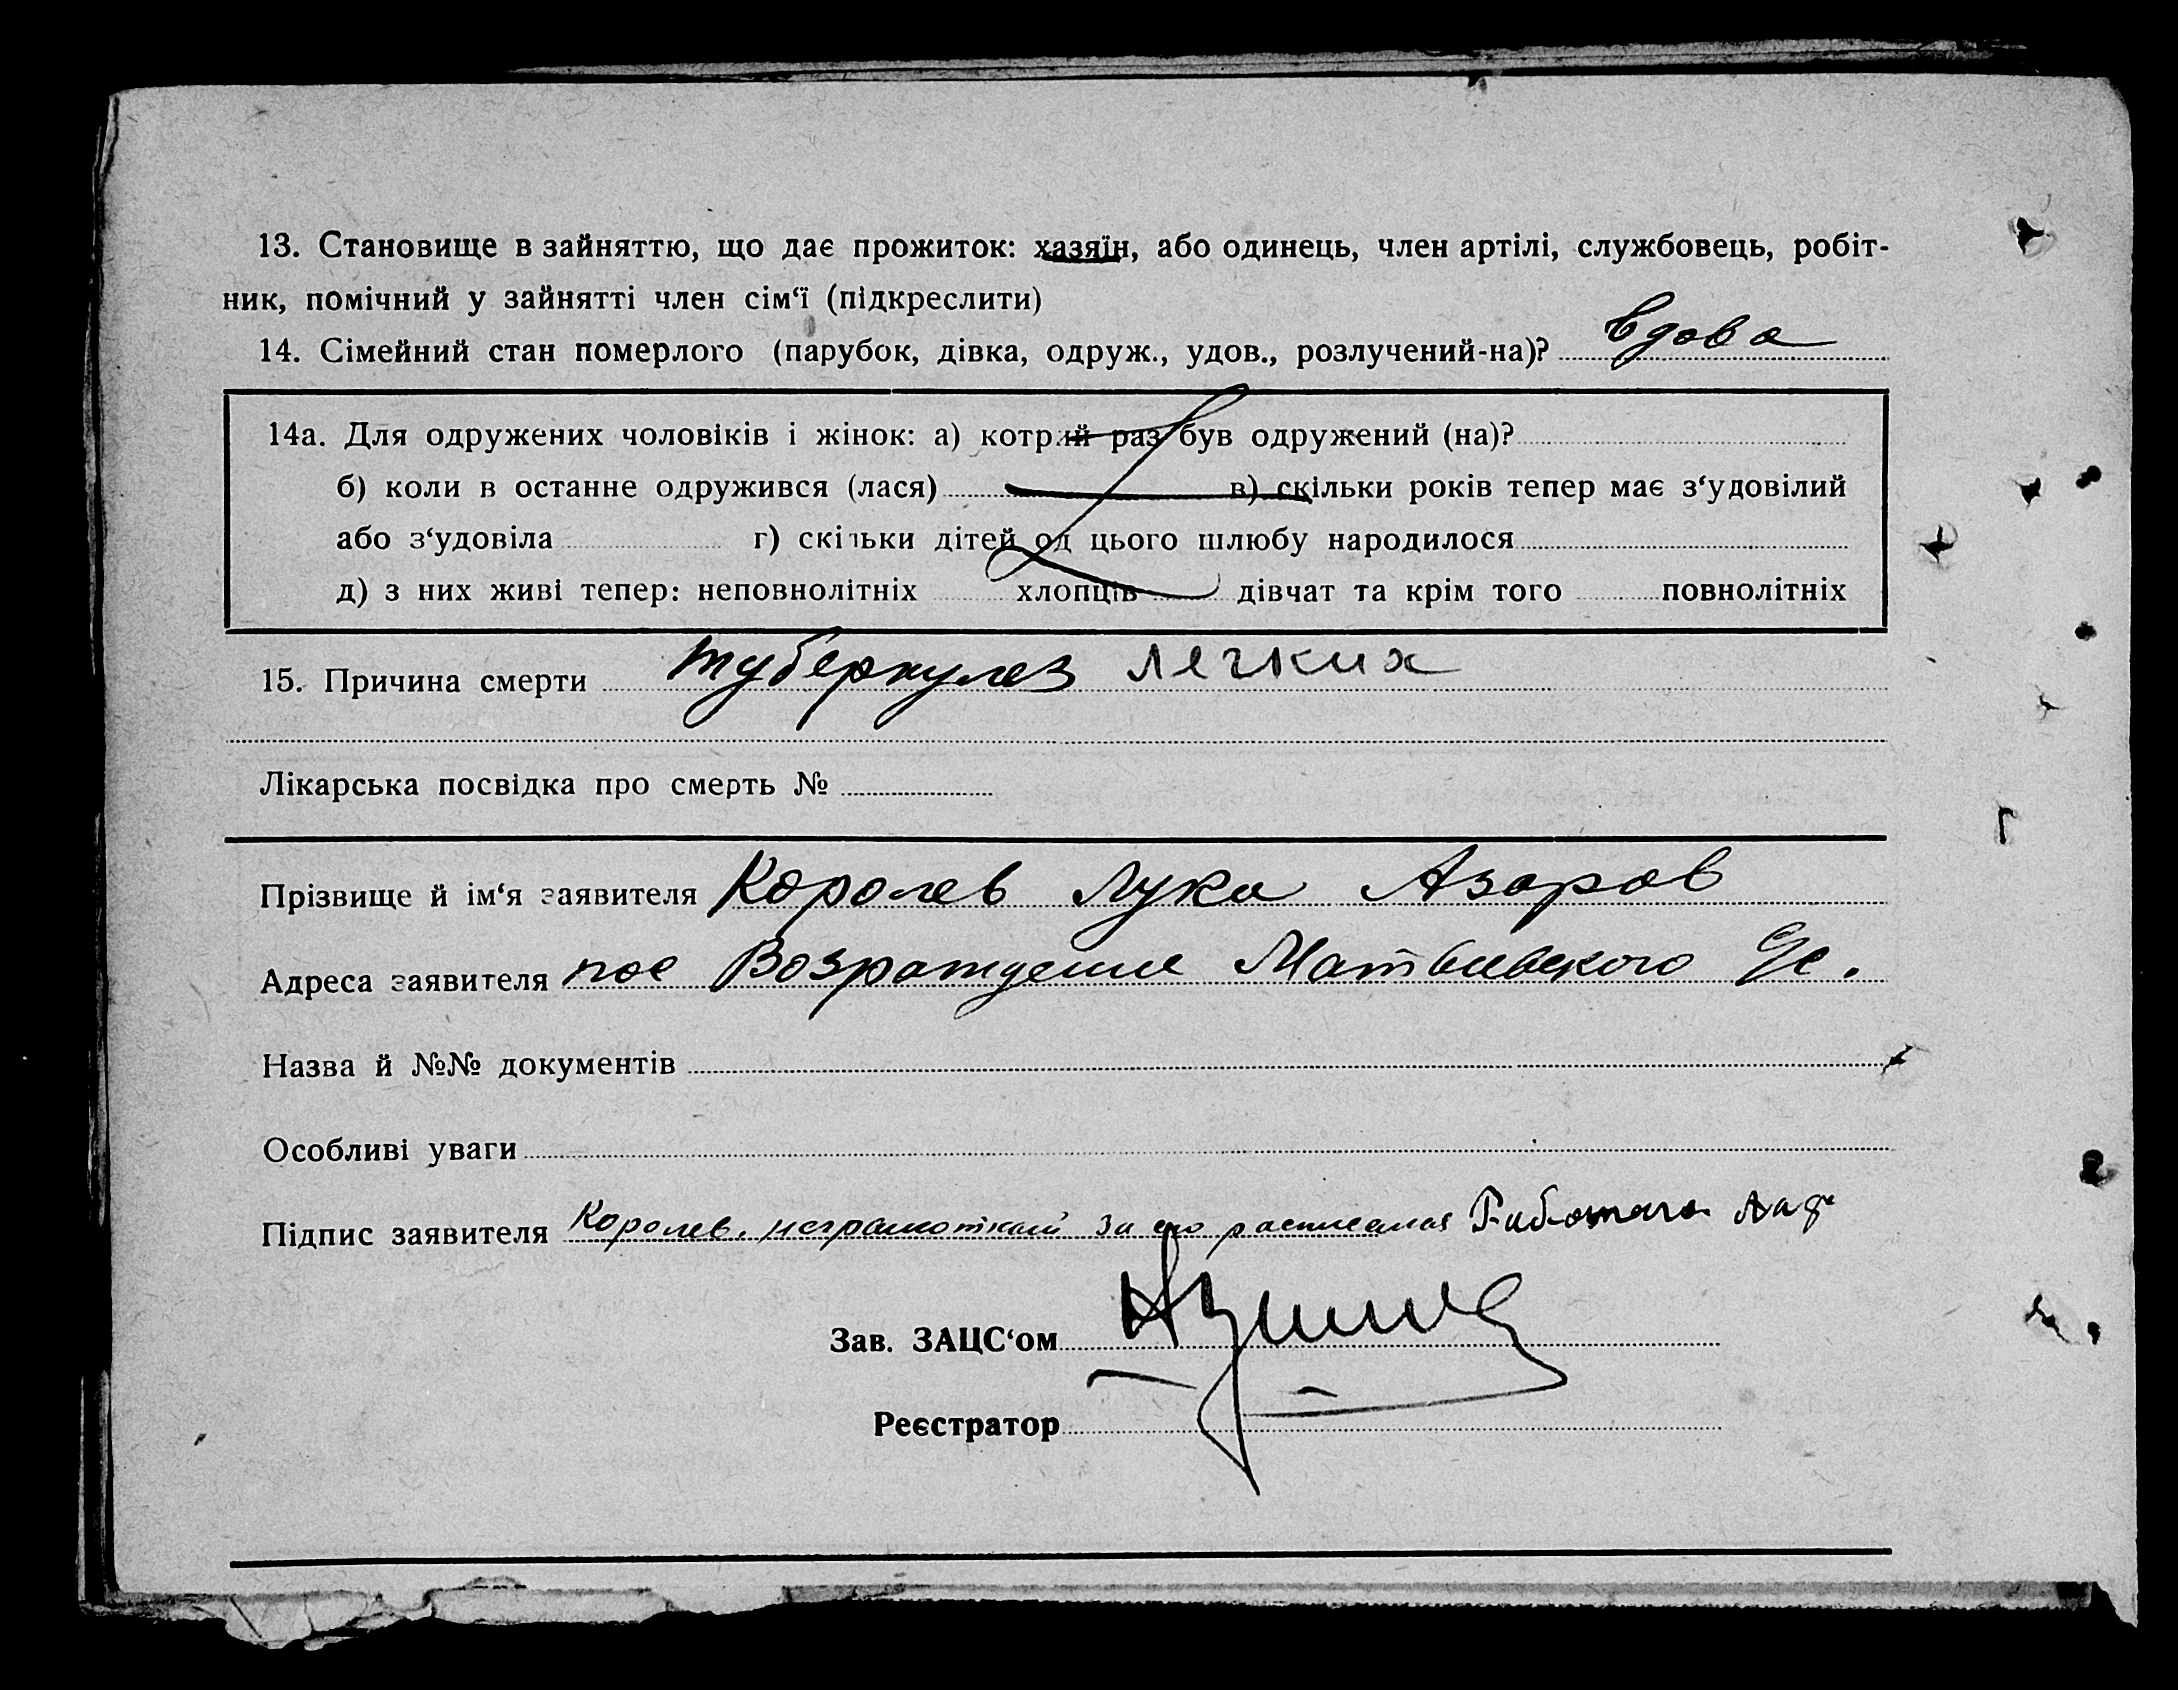 13. Становище в зайняттю, що дає прожиток: хазяїн, або одинець, член артілі, службовець, робіт-
ник, помічний у зайнятті член сім‘ї (підкреслити)
14. Сімейний стан померлого (парубок, дівка, одруж., удов., розлучений-на)? вдова
14а. Для одружених чоловіків і жінок: а) котрий раз був одружений (на)?
б) коли в останне одружився (лася) в) скільки років тепер має з‘удовілий
або з‘удовіла г) скільки дітей од цього шлюбу народилося
д) з них живі тепер: неповнолітніх хлопців дівчат та крім того повнолітніх
15. Причина смерти туберкулез легких
Лікарська посвідка про смерть №
Прізвище й ім‘я заявителя Королев Лука Азаров
Адреса заявителя пос Возраждение Матвиевского
Назва й №№ документів
Особливі уваги
Підпис заявителя Королев. неграмотный за его расписался
Зав. ЗАЦС‘ом
Реєстратор